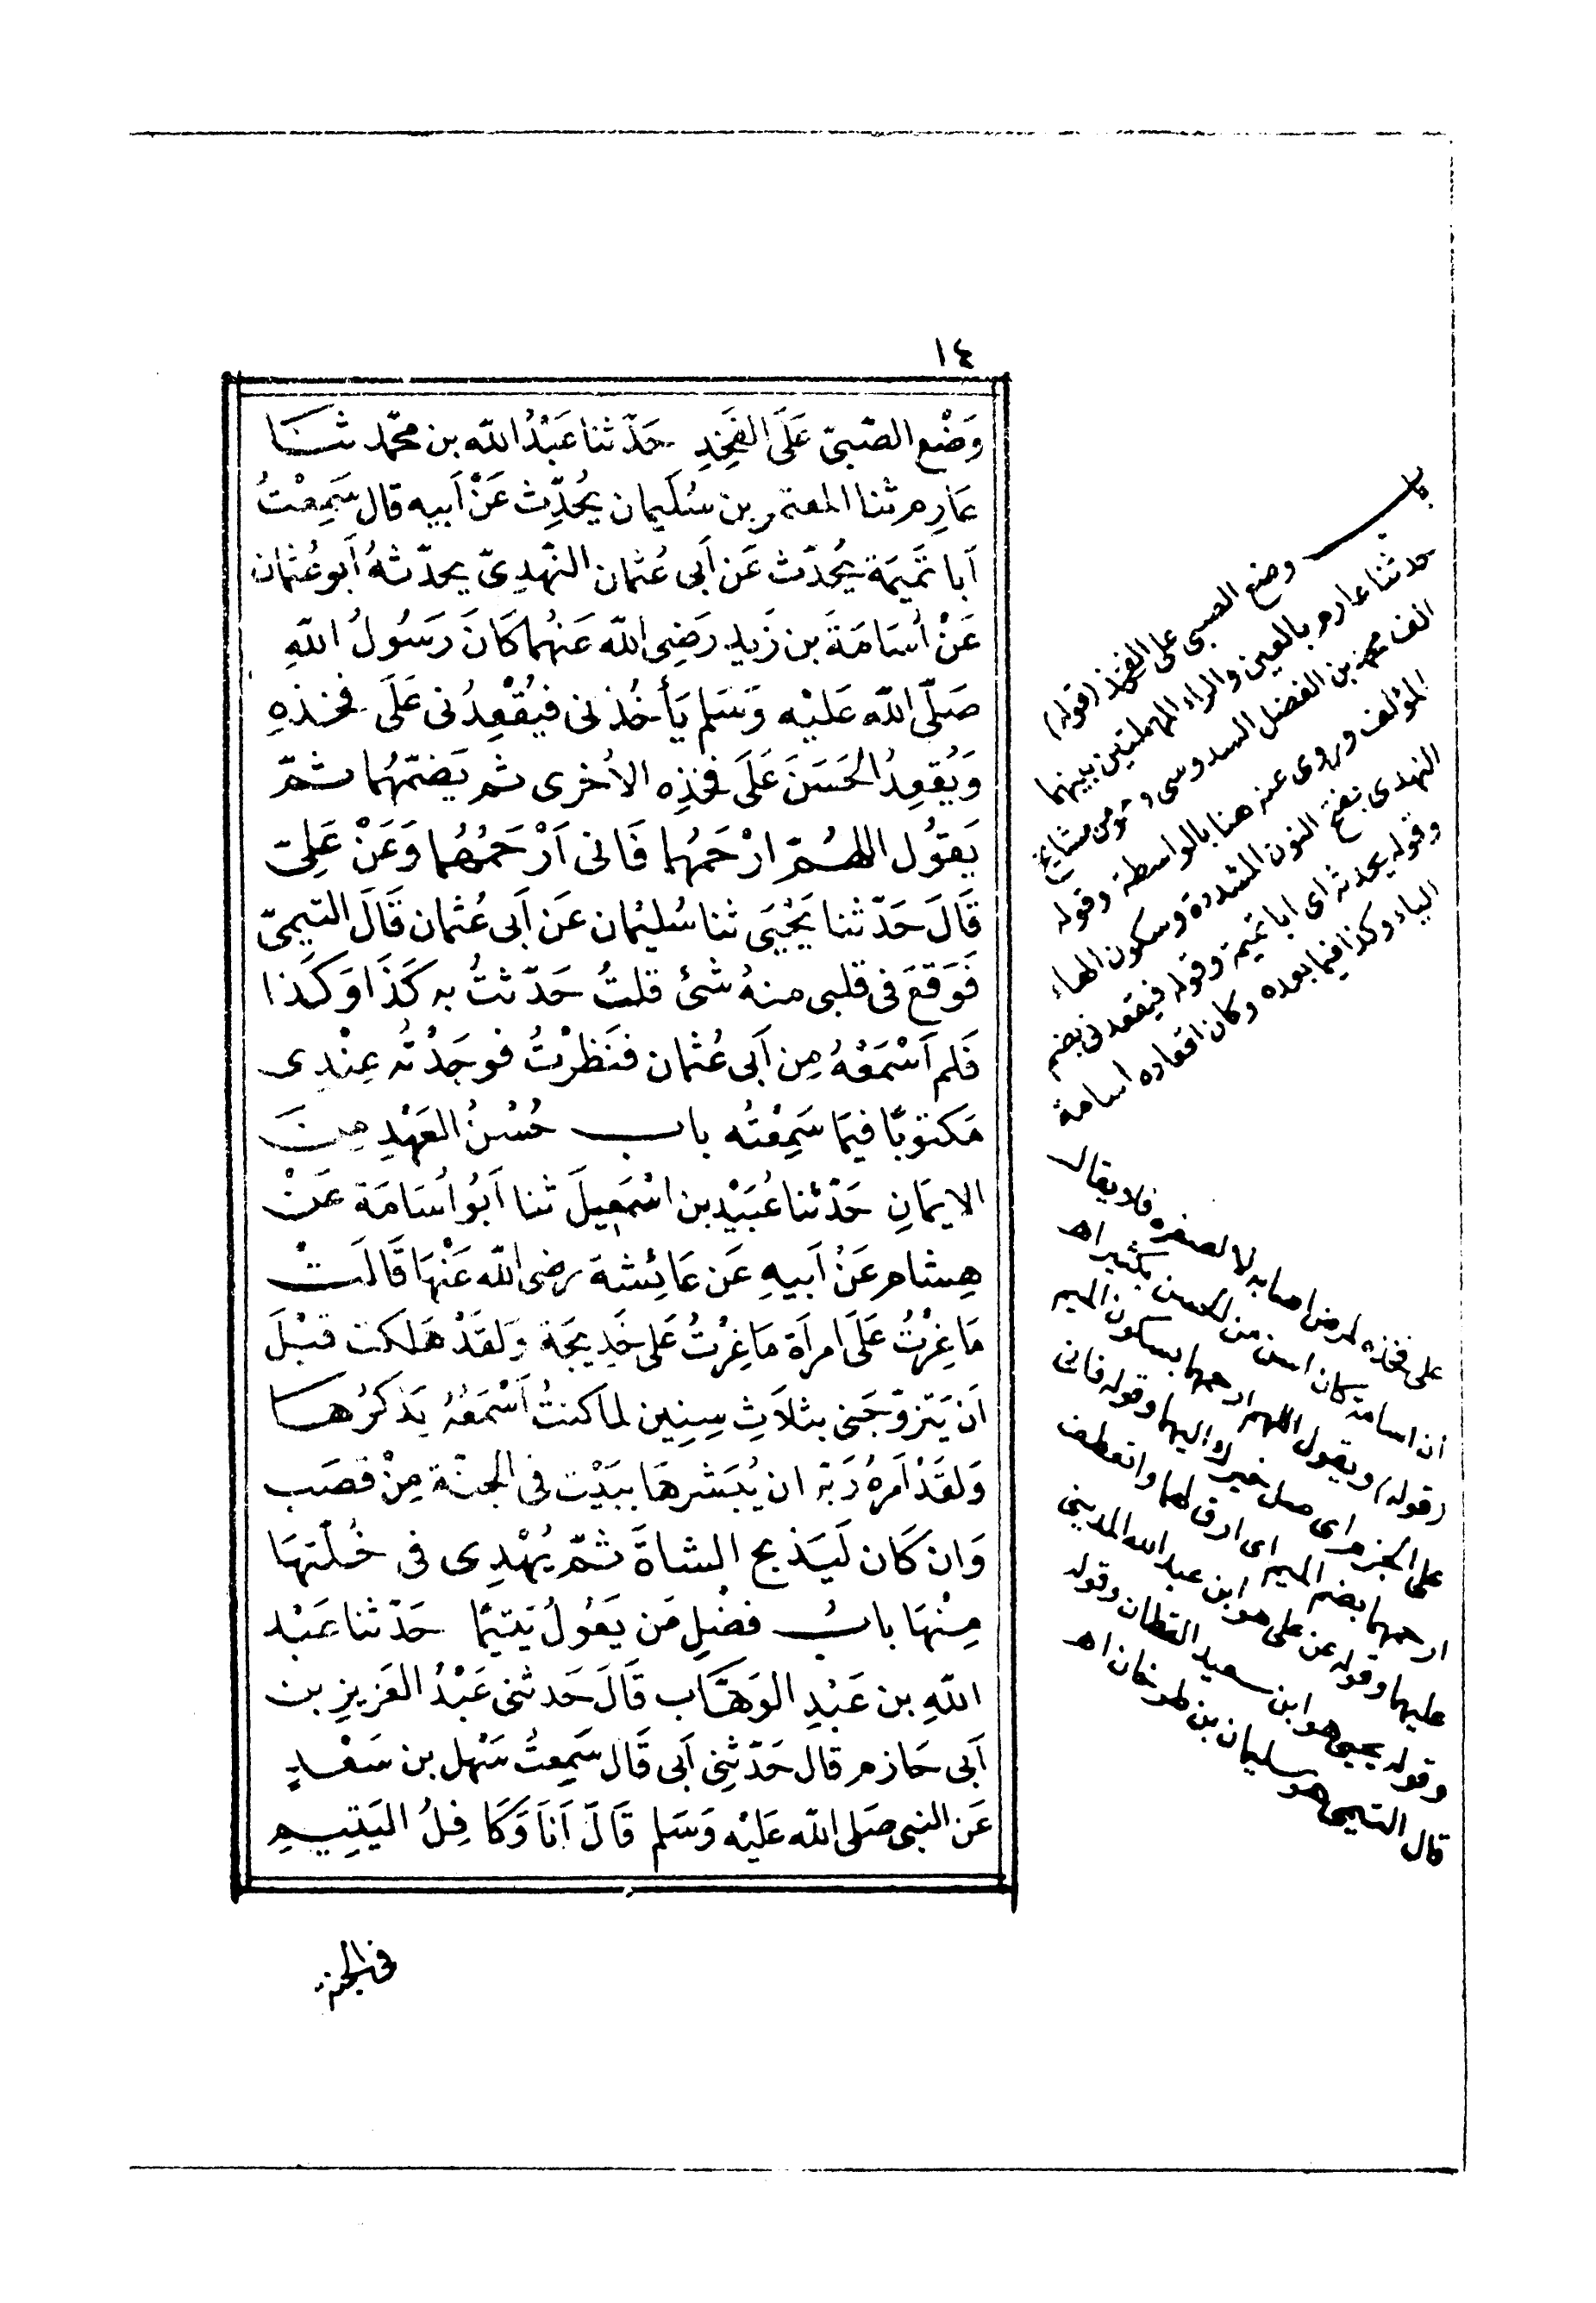 ١٤
وَضْعِ الصَّبىّ عَلَى الفَخِذِ حَدّثنا عَبْدُ اللّه بن محمّد ثنا
عَارِم ثنا المعتمر بن سُلَيمان يُحَدِّث عَنْ أَبيه قال سَمِعْتُ
أَبا تَمِيمَة يُحَدّث عَن أَبى عُثمان النَّهدِىّ يحدّثهُ أَبو عُثمان
عَنْ أُسَامَةَ بن زَيدٍ رَضِى اللّه عَنهُما كَانَ رَسُولُ اللّهِ
صَلّى اللّه عَليْه وَسَلم يَأخُذنى فيُقْعِدُنى عَلَى فخذهِ
وَيُقعِدُ الحَسَنَ عَلَى فخِذِه الاُخرى ثم يَضمّهُما ثمّ
يَقوُل اللهُمّ ارْحَمهُما فَانى اَرْحَمُهُما وَعَنْ عَلِىّ
قَالَ حَدّثنا يَحْيَى ثنا سُليْمان عَن أَبى عُثمان قَالَ التيمىّ
فَوَقعَ فى قلبى منهُ شئ قلتُ حَدّثتُ به كَذَا وَكَذا
فَلم اَسْمَعْهُ مِن اَبى عُثمان فنَظرْتُ فوجَدْته عِنْدِى
مَكتوبًا فيمَا سَمِعْتُه باب حُسْنُ العَهْدِ مِنَ
الايمَانِ حَدّثنا عُبَيْد بن اسْمَعِيلَ ثنا اَبُو اُسَامَة عَنْ
هِشام عَنْ اَبيهِ عَن عَائِشة رضى اللّه عَنْهَا قَالَتْ
مَا غِرْتُ عَلَى امراَة مَا غِرْتُ عَلى خَدِيجَة وَلقَدْ هَلكت قبْلَ
اَن يَتزوّجَنى بثلاَثِ سِنِين لما كنتُ اَسْمَعُهُ يَذكرُها
وَلقَدْ اَمرهُ رَبّه ان يُبَشرهَا ببَيْت فى الجنّة مِنْ قصَب
وَان كَان لَيَذبح الشاةَ ثمّ يُهْدِى فى خُلّتهَا
مِنْهَا بابُ فضْلِ مَن يَعُولُ يَتيمًا حَدّثنا عَبْد
اللّهِ بن عَبْدِ الوَهّاب قَالَ حَدثنى عَبْدُ العَزيزِ بن
اَبى حَازم قال حَدّثنِى اَبى قَال سَمِعتُ سَهْل بن سَعْدٍ
عَن النبى صَلى اللّه عَليْه وَسَلم قَالَ اَنَا وَكَافِلُ اليَتِيمِ
فى الجنة
باب وضع الصبى على الفخذ (قوله)
حدثنا عارم بالعين والراء المهملتين بينهما
الف محمد بن الفضل السدوسى وهو من مشايخ
المؤلف وروى عنه هنا بالواسطة وقوله
النهدى بفتح النون المشددة وسكون الهاء
وقوله يحدثه اى ابا تميمة وقوله فيقعدنى بضم
الياء وكذا فيما بعده وكان اقعاده اسامة
على فخذه لمرض اصابه لا لصغره فلا يقال
ان اسامة كان اسن من الحسن بكثير اهـ
(قوله) ويقول اللهم ارحمهما بسكون الميم
على الجزم اى صل خيرك اليهما وقوله فانى
ارحمهما بضم الميم اى ارق لهما واتعطف
عليهما وقوله عن على هو ابن عبد الله المدينى
وقوله يحيى هو ابن سعيد القطان وقوله
قال التيمى هو سليمان بن طرخان اهـ